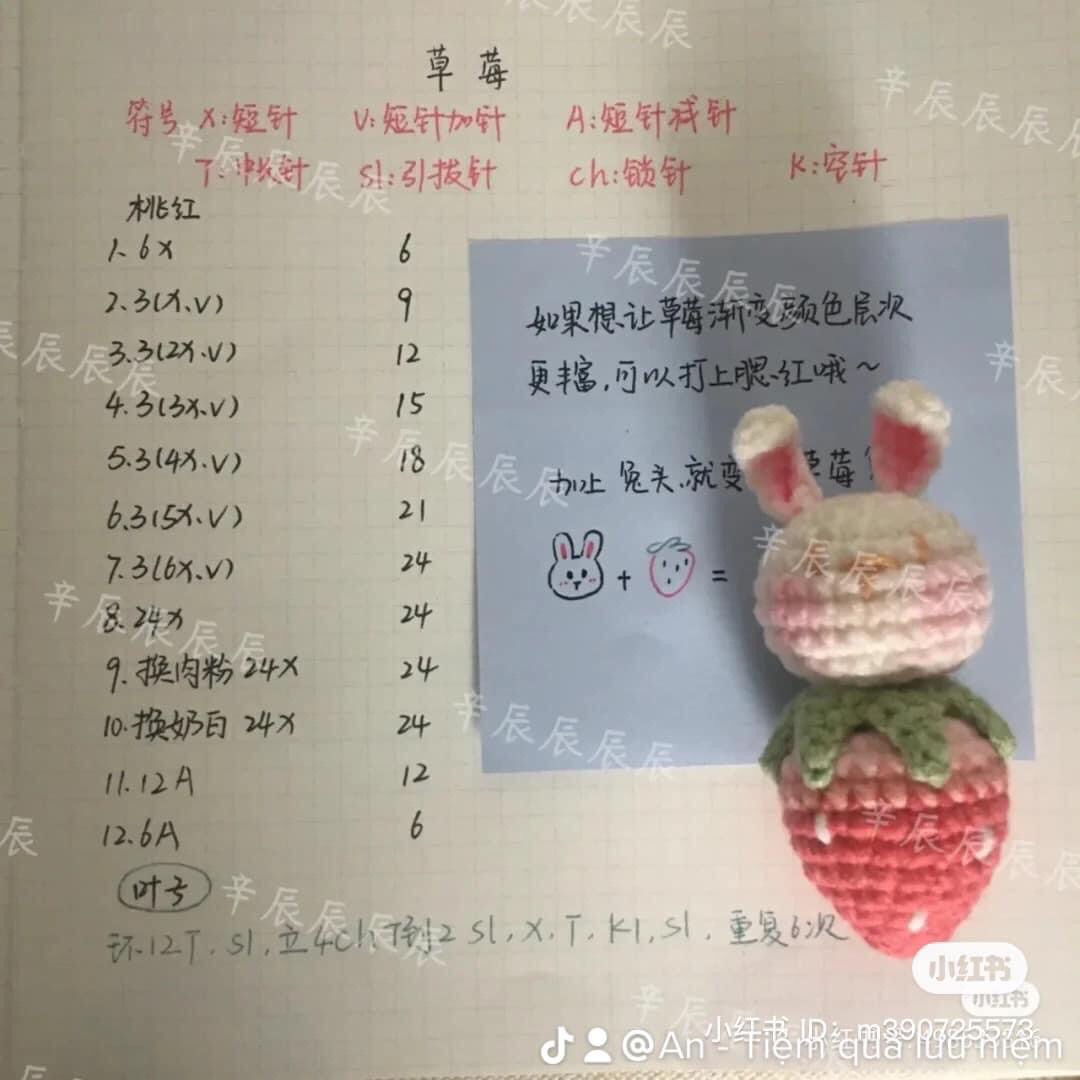 草莓
符号 X:短针 V:短针加针 A:短针减针
T:中长针 Sl:引拨针 Ch:锁针 K:空针
桃红
1. 6X 6
2. 3(X.V) 9
3. 3(2X.V) 12
4. 3(3X.V) 15
5. 3(4X.V) 18
6. 3(5X.V) 21
7. 3(6X.V) 24
8. 24X 24
9. 换肉粉 24X 24
10. 换奶白 24X 24
11. 12A 12
12. 6A 6
叶子
环.12T, Sl, 立4Ch 倒2 Sl, X, T, K1, Sl, 重复6次
如果想让草莓渐变颜色层次
更丰富,可以打上腮红哦~
加上 兔头,就变 草莓
+ =
辛辰辰辰辰
小红书
小红书
小红书 ID: m390725573
@An - Tiệm quà lưu niệm